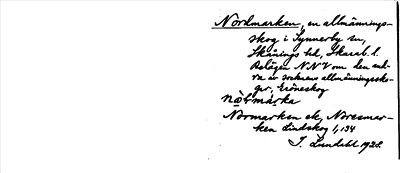 Nordmarken, en allmännings-
skog i Synnerby sn,
Skånings hd, Skarab. l.
Belägen NNV om den and-
ra av socknens allmänningssko-
gar, Gröneskog
Normarken ek, Noresmar-
ken Lindskog 1,134
I. Lundahl 1928.